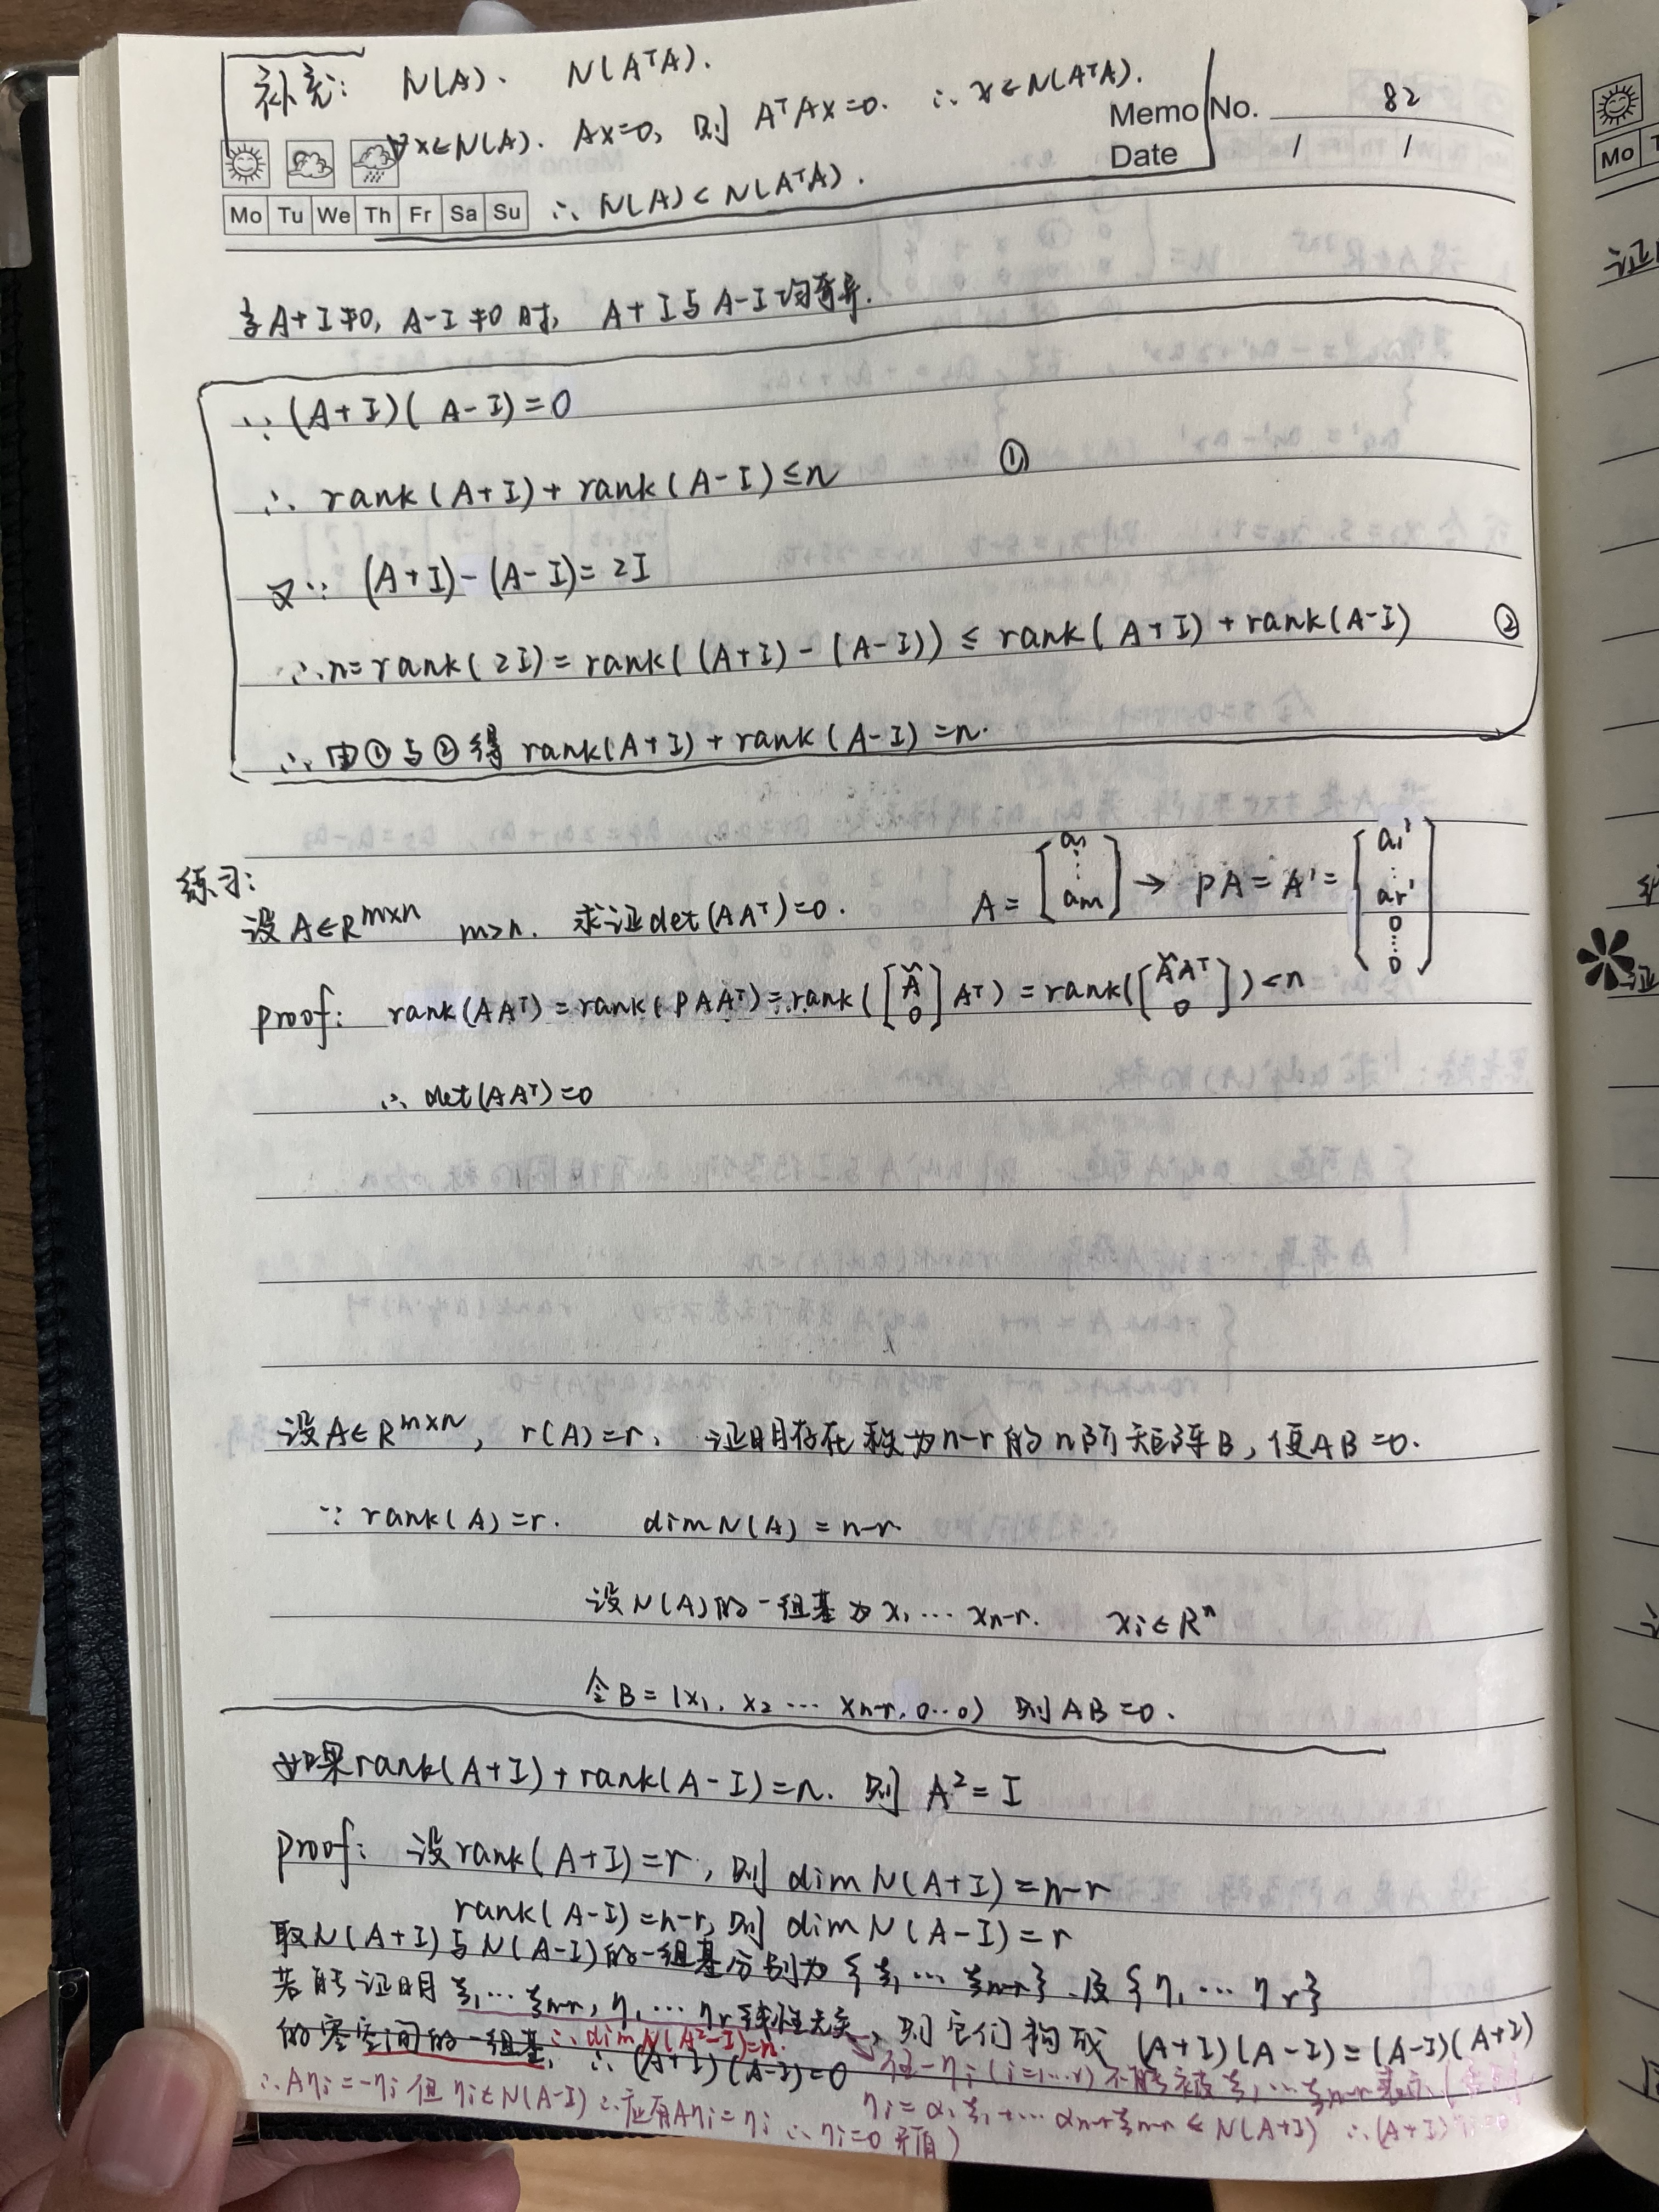 补充: N(A). N(AᵀA).
∀x∈N(A). Ax=0, 则 AᵀAx=0. ∴ x∈N(AᵀA).
Memo No. 82
Date / /
Mo Tu We Th Fr Sa Su
∴ N(A)⊂N(AᵀA).
当A+I≠0, A-I≠0 时, A+I与A-I均奇异.
∵ (A+I)(A-I)=0
∴ rank(A+I)+rank(A-I)≤n ①
又∵ (A+I)-(A-I)=2I
∴n=rank(2I)=rank((A+I)-(A-I))≤rank(A+I)+rank(A-I) ②
∴由①与②得 rank(A+I)+rank(A-I)=n.
练习:
设A∈R^{m×n} m>n. 求证det(AAᵀ)=0. A=[a₁ ⋮ am] → PA=A'=[a₁' ⋮ ar' 0 ⋮ 0]
proof: rank(AAᵀ)=rank(PAAᵀ)=rank([Ã 0]Aᵀ)=rank([ÃAᵀ 0])<n
∴ det(AAᵀ)=0
设A∈R^{m×n}, r(A)=r. 证明存在秩为n-r的n阶矩阵B, 使AB=0.
∵ rank(A)=r. dimN(A)=n-r
设N(A)的一组基为x₁…xn-r. xi∈Rⁿ
令B=(x₁, x₂…xn-r, 0…0) 则AB=0.
如果rank(A+I)+rank(A-I)=n. 则 A²=I
proof: 设rank(A+I)=r, 则dimN(A+I)=n-r
rank(A-I)=n-r, 则dimN(A-I)=r
取N(A+I)与N(A-I)的一组基分别为{ξ₁…ξn-r}及{η₁…ηr}
若能证明ξ₁…ξn-r, η₁…ηr线性无关, 则它们构成(A+I)(A-I)=(A-I)(A+I)
的零空间的一组基. ∴dimN(A²-I)=n. ∴(A+I)(A-I)=0
任一ηi(i=1…r)不能被ξ₁…ξn-r表示
ηi=α₁ξ₁+…αn-rξn-r∈N(A+I) ∴(A+I)ηi=0
∴Aηi=-ηi 但ηi∈N(A-I) ∴应有Aηi=ηi ∴ηi=0 矛盾)